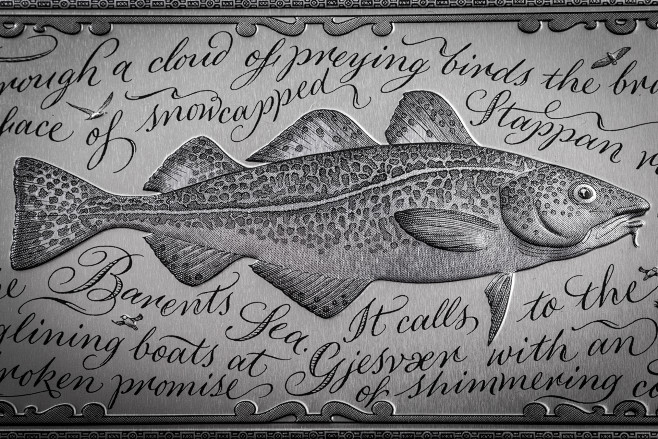 rough a cloud of preying birds the bra
face of snowcapped Stappan
e Barents Sea. It calls to the
glining boats at Gjesvær with an
roken promise of shimmering co